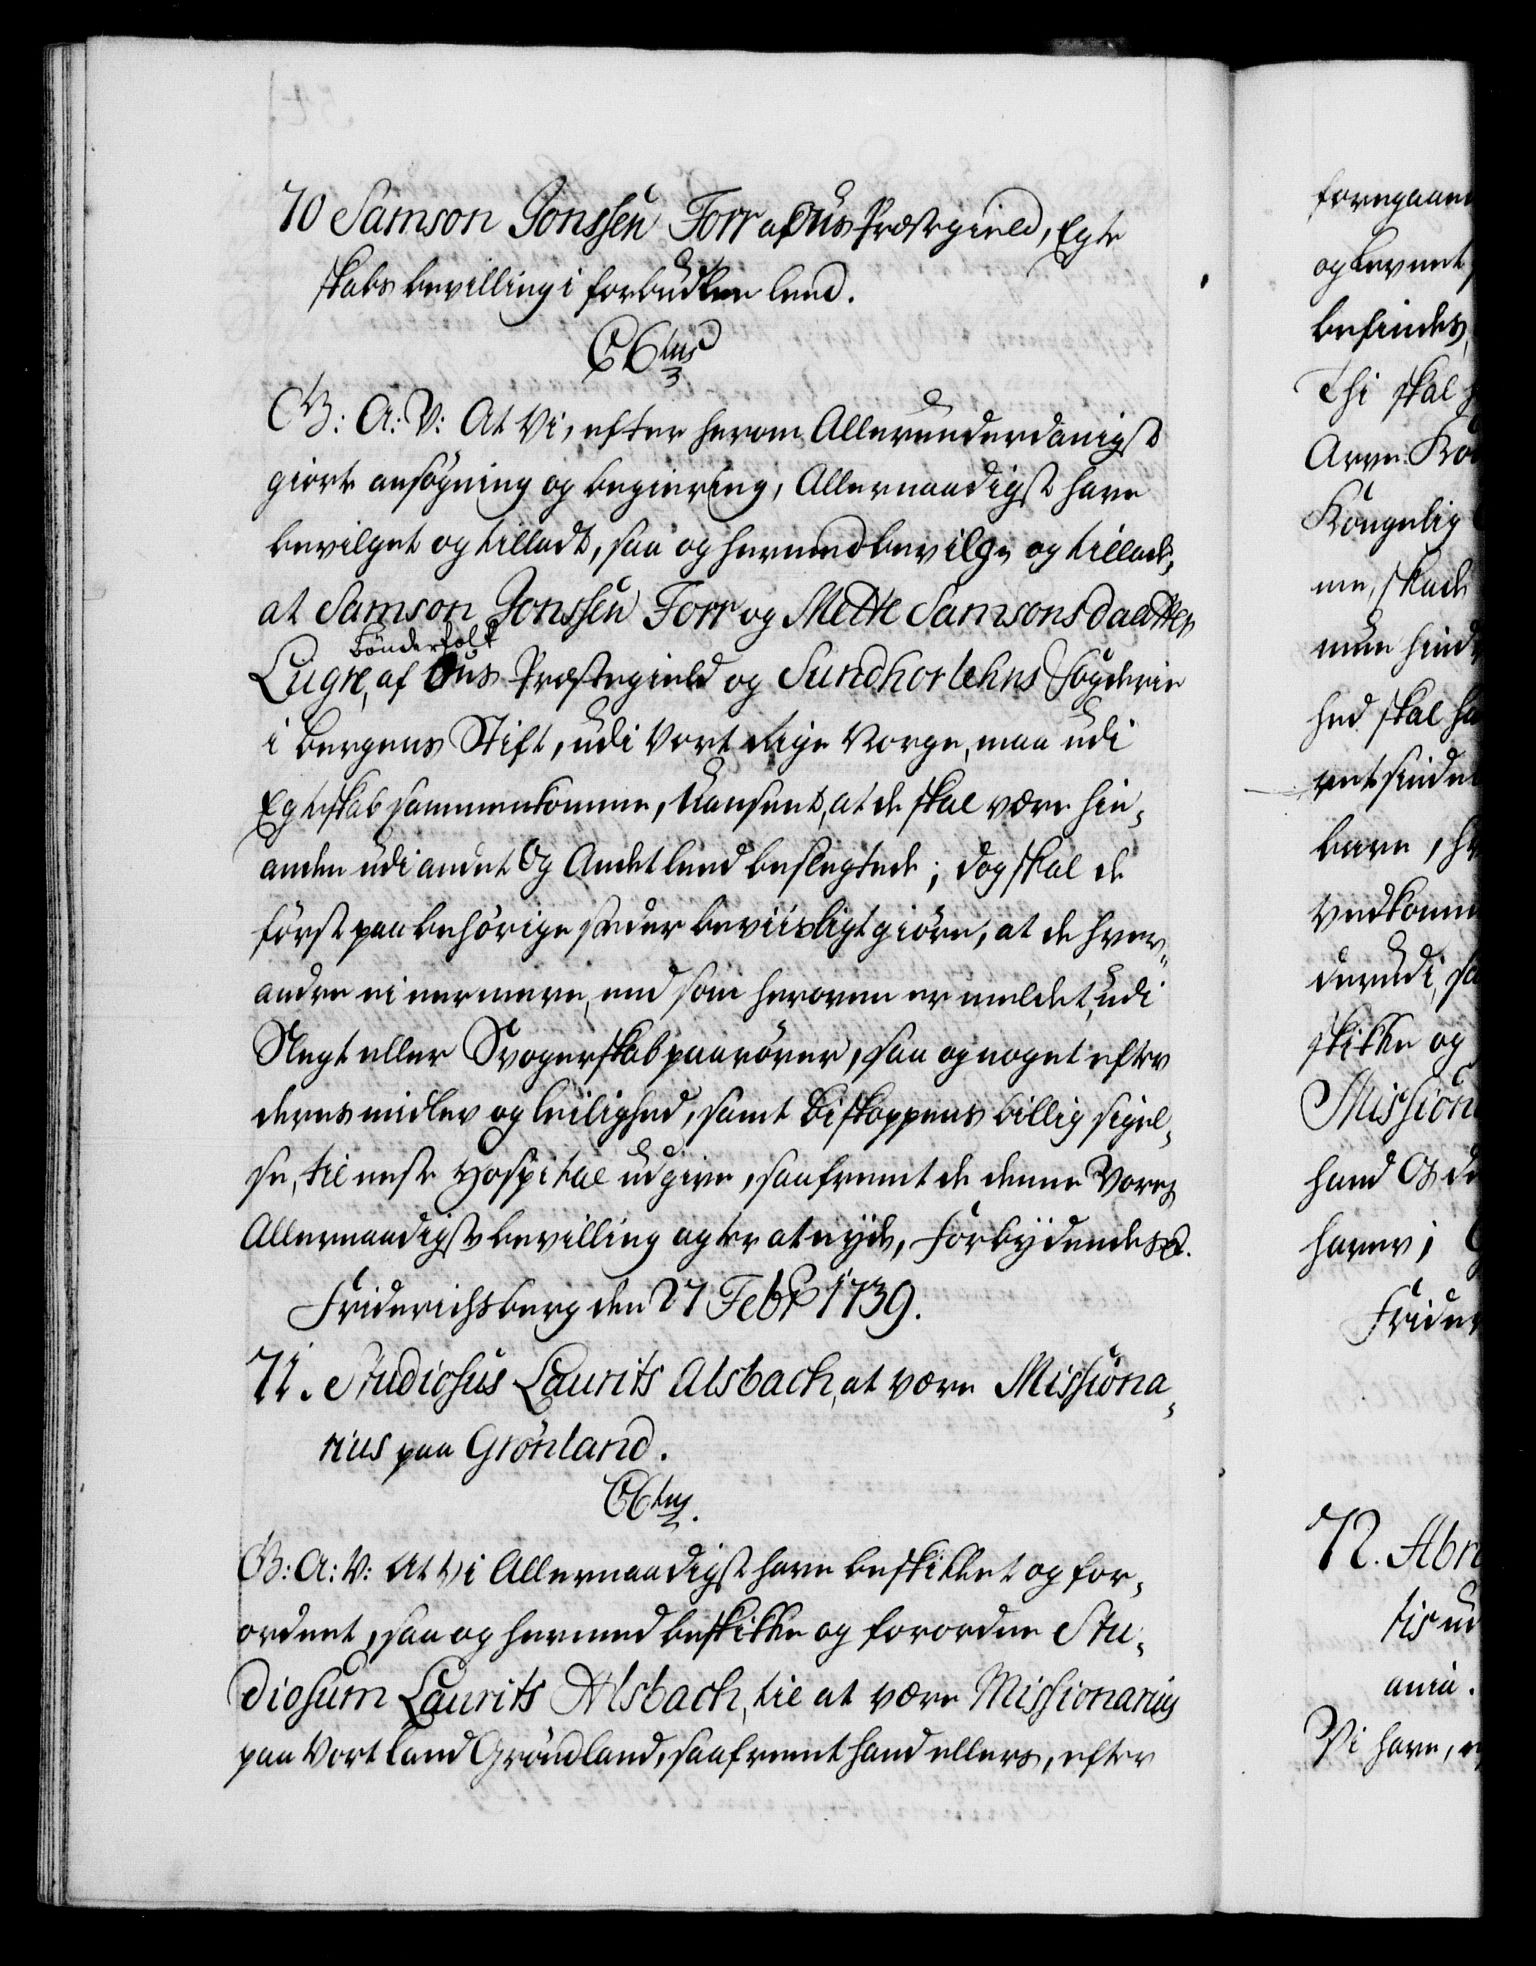 70 Samson Jonssen Forr af Ous Præstegield, Egte
skabs bevilling i forbudten leed.
C 6tus
G: A: V: At Vi, efter herom Allerunderdanigst
giorte ansøgning og begiering, Allernaadigst have
bevilget og tilladt, saa og hermed bevilge og tillade,
at Samson Jonssen Forr og Mette Samsonsdaatter
bønderfolk
Lugre, af Ous Præstegield og Sundhorlehns Fogderie
i Bergens Stift, udi Vort Rige Norge, maa udi
Egteskab sammenkomme, Uanseet, at de skal være hin-
anden udi andet Og Andet leed beslegtede; dog skal de
først paa behørige steder beviisligt giøre, at de hver-
andre ei nermere, end som heroven er meldet, udi
Slegt eller Svogerskab paarører, saa og noget efter
deres midler og leilighed, samt Biskoppens billig sigel-
se, til neste Hospital udgive, saafremt de denne Vores
Allernaadigste bevilling agter at nyde, Forbydendes etc.
Friderichsberg den 27 Febr 1739.
71. Studiosus Laurits Alsbach, at være Missiona-
rius paa Grønland.
C 6tus.
G: A: V: At Vi Allernaadigst have beskikket og for-
ordnet, saa og hermed beskikke og forordne Stu-
diosum Laurits Alsbach, til at være Missionarius
paa Vort land Grønland, saafremt hand ellers, efter
foregaaen
og levnet
befindes,
Thi skal h
Arve Kon
Kongelig
me, skade
mue hind
hed skal ha
retsindet
bære, h
vedkomm
derudi, sa
skikke og
Mission
hand Os d
haver;
Frider
72. Abr
tis ud
ania.
Vi have, e